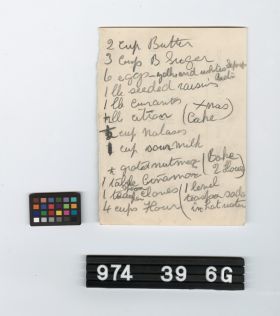 2 cup Butter
3 cups B Suger
6 eggs yolks and whites
1 lb seeded raisins
1 lb currants
lb citron (Xmas Cake)
cup molases
1 cup sour milk
grated nutmeg (Bake 2 hours
1 table Cinnamon
1 teaspoon cloves (1 level teaspoon soda
4 cups Flour (in hot water
974 39 6G